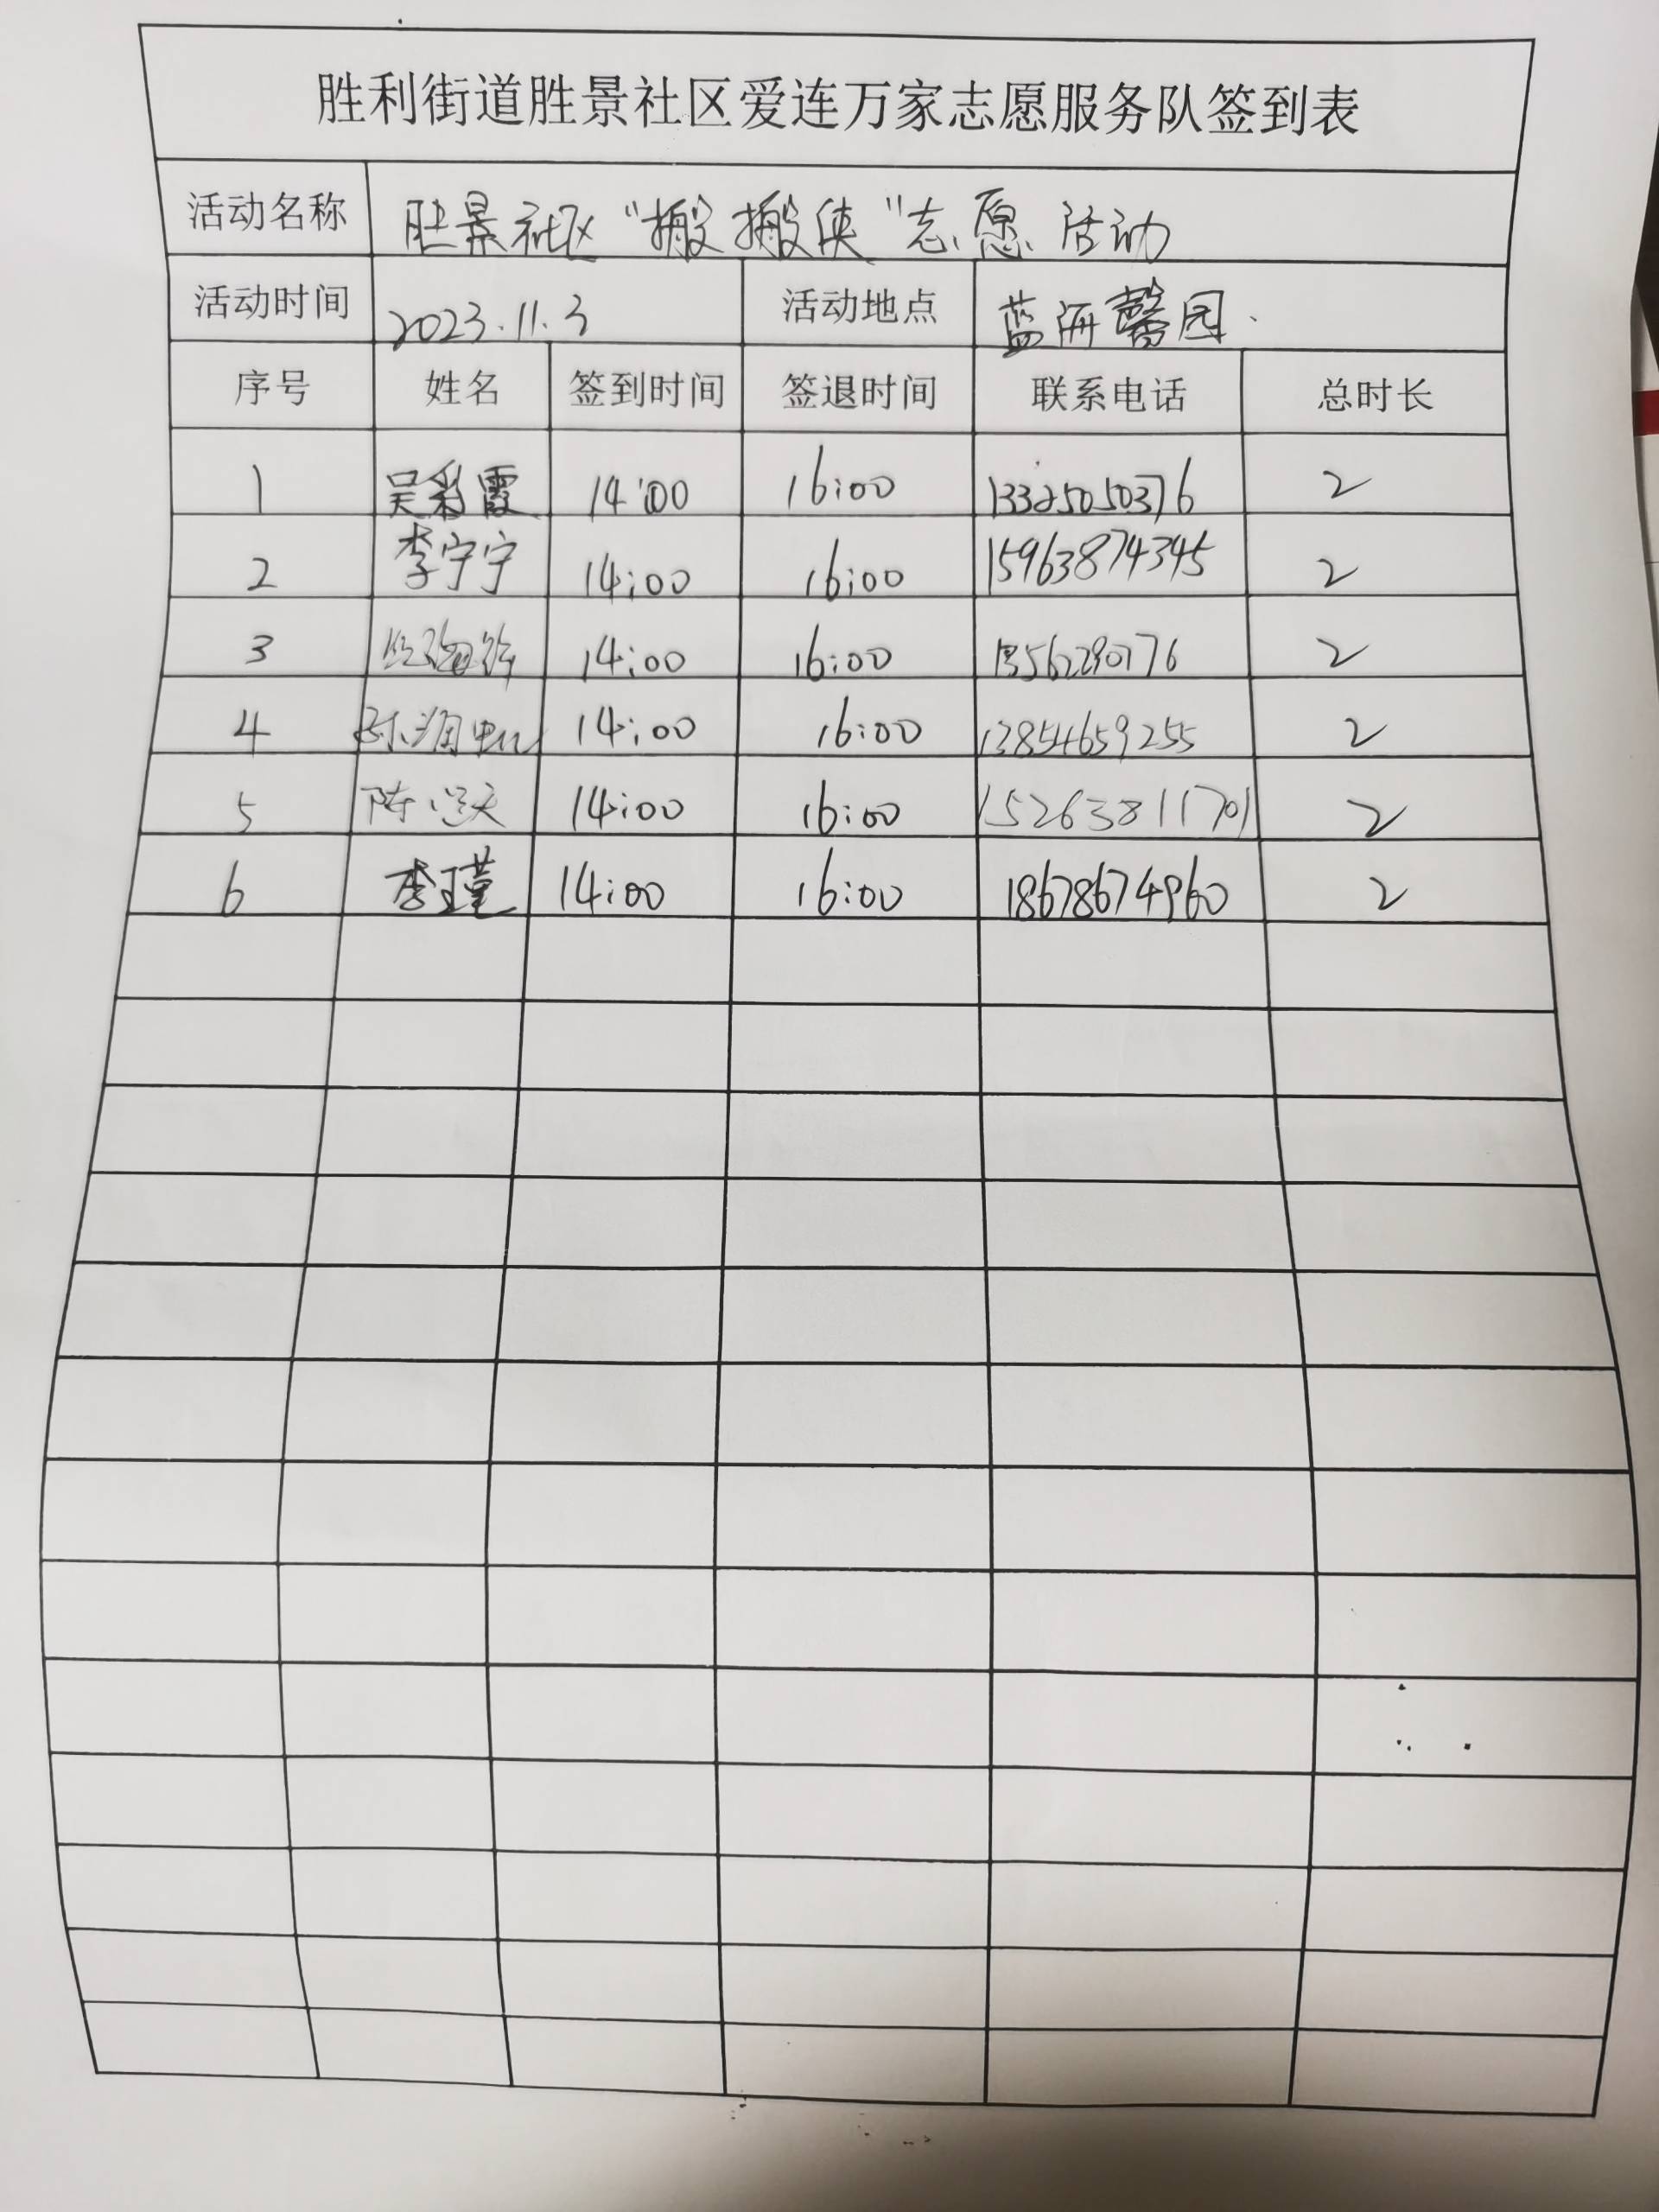 胜利街道胜景社区爱连万家志愿服务队签到表
活动名称 胜景社区“搬搬侠”志愿活动
活动时间 2023.11.3 活动地点 蓝海馨园
序号 姓名 签到时间 签退时间 联系电话 总时长
1 吴彩霞 14:00 16:00 13325050376 2
2 李宁宁 14:00 16:00 15963874345 2
3 14:00 16:00 2
4 14:00 16:00 13854659255 2
5 陈 天 14:00 16:00 15263811701 2
6 李瑾 14:00 16:00 18678674960 2